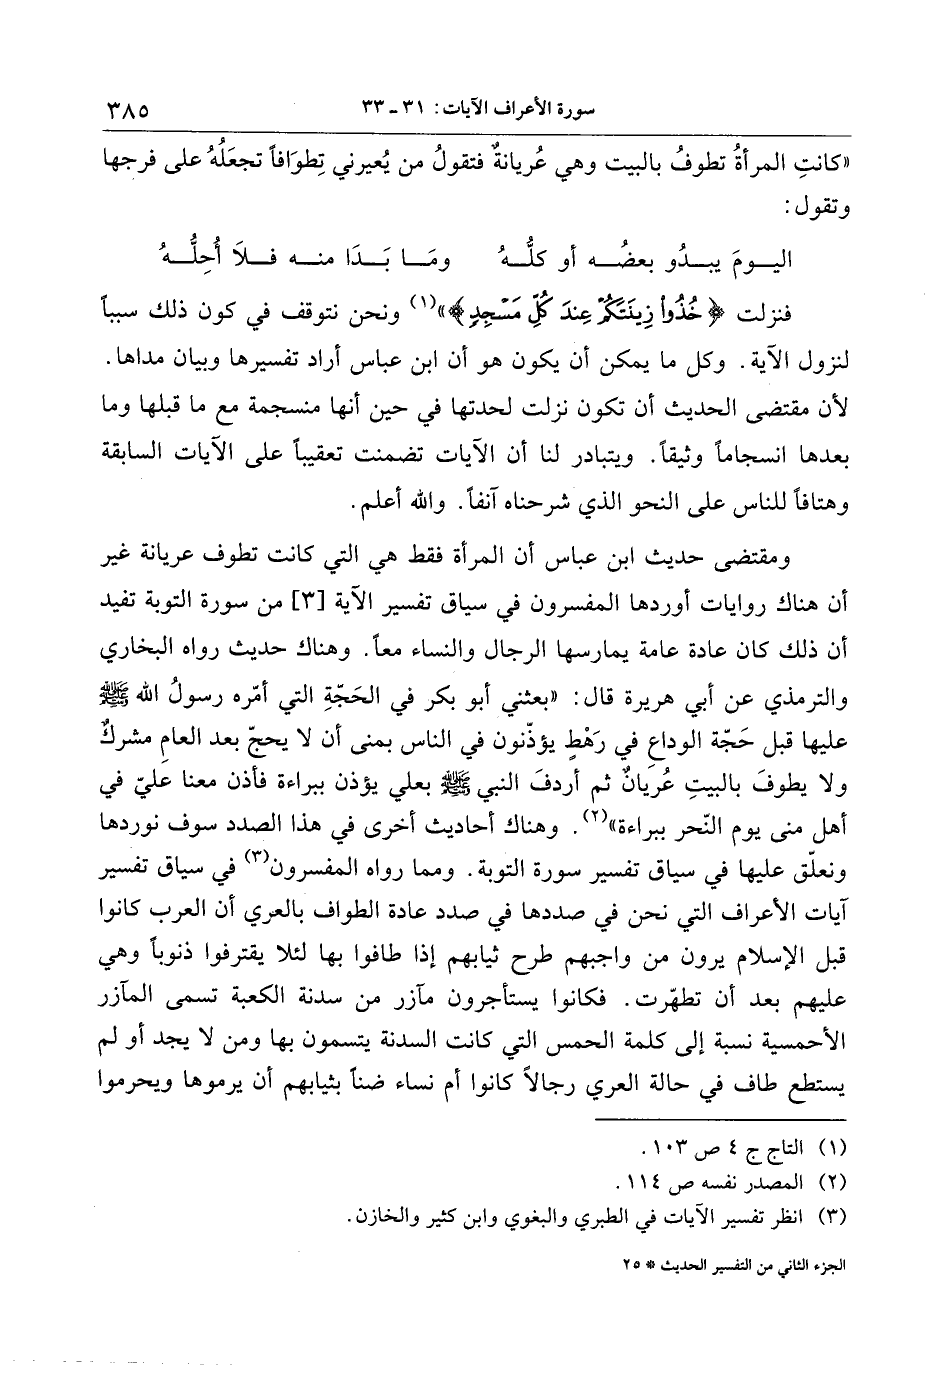 سورة الأعراف الآيات: ٣١ ـ ٣٣ ٣٨٥
«كانتِ المرأةُ تطوفُ بالبيت وهي عُريانةٌ فتقولُ من يُعيرني تِطوَافاً تجعَلُهُ على فرجها
وتقول:
اليومَ يبدُو بعضُه أو كلُّهُ ومَا بَدَا منه فلاَ أُحِلُّهُ
فنزلت ﴿خُذُوا زِينَتَكُمْ عِندَ كُلِّ مَسْجِدٍ﴾»(١) ونحن نتوقف في كون ذلك سبباً
لنزول الآية. وكل ما يمكن أن يكون هو أن ابن عباس أراد تفسيرها وبيان مداها.
لأن مقتضى الحديث أن تكون نزلت لحدتها في حين أنها منسجمة مع ما قبلها وما
بعدها انسجاماً وثيقاً. ويتبادر لنا أن الآيات تضمنت تعقيباً على الآيات السابقة
وهتافاً للناس على النحو الذي شرحناه آنفاً. والله أعلم.
ومقتضى حديث ابن عباس أن المرأة فقط هي التي كانت تطوف عريانة غير
أن هناك روايات أوردها المفسرون في سياق تفسير الآية [٣] من سورة التوبة تفيد
أن ذلك كان عادة عامة يمارسها الرجال والنساء معاً. وهناك حديث رواه البخاري
والترمذي عن أبي هريرة قال: «بعثني أبو بكر في الحَجّةِ التي أمّره رسولُ الله ﷺ
عليها قبل حَجّة الوداعِ في رَهْطٍ يؤذّنون في الناس بمنى أن لا يحجّ بعد العامِ مشركٌ
ولا يطوفَ بالبيتِ عُريانٌ ثم أردفَ النبي ﷺ بعلي يؤذن ببراءة فأذن معنا عَليّ في
أهل منى يوم النّحر ببراءة»(٢). وهناك أحاديث أخرى في هذا الصدد سوف نوردها
ونعلّق عليها في سياق تفسير سورة التوبة. ومما رواه المفسرون(٣) في سياق تفسير
آيات الأعراف التي نحن في صددها في صدد عادة الطواف بالعري أن العرب كانوا
قبل الإسلام يرون من واجبهم طرح ثيابهم إذا طافوا بها لئلا يقترفوا ذنوباً وهي
عليهم بعد أن تطهّرت. فكانوا يستأجرون مآزر من سدنة الكعبة تسمى المآزر
الأحمسية نسبة إلى كلمة الحمس التي كانت السدنة يتسمون بها ومن لا يجد أو لم
يستطع طاف في حالة العري رجالاً كانوا أم نساء ضناً بثيابهم أن يرموها ويحرموا
(١) التاج ج ٤ ص ١٠٣.
(٢) المصدر نفسه ص ١١٤.
(٣) انظر تفسير الآيات في الطبري والبغوي وابن كثير والخازن.
الجزء الثاني من التفسير الحديث * ٢٥